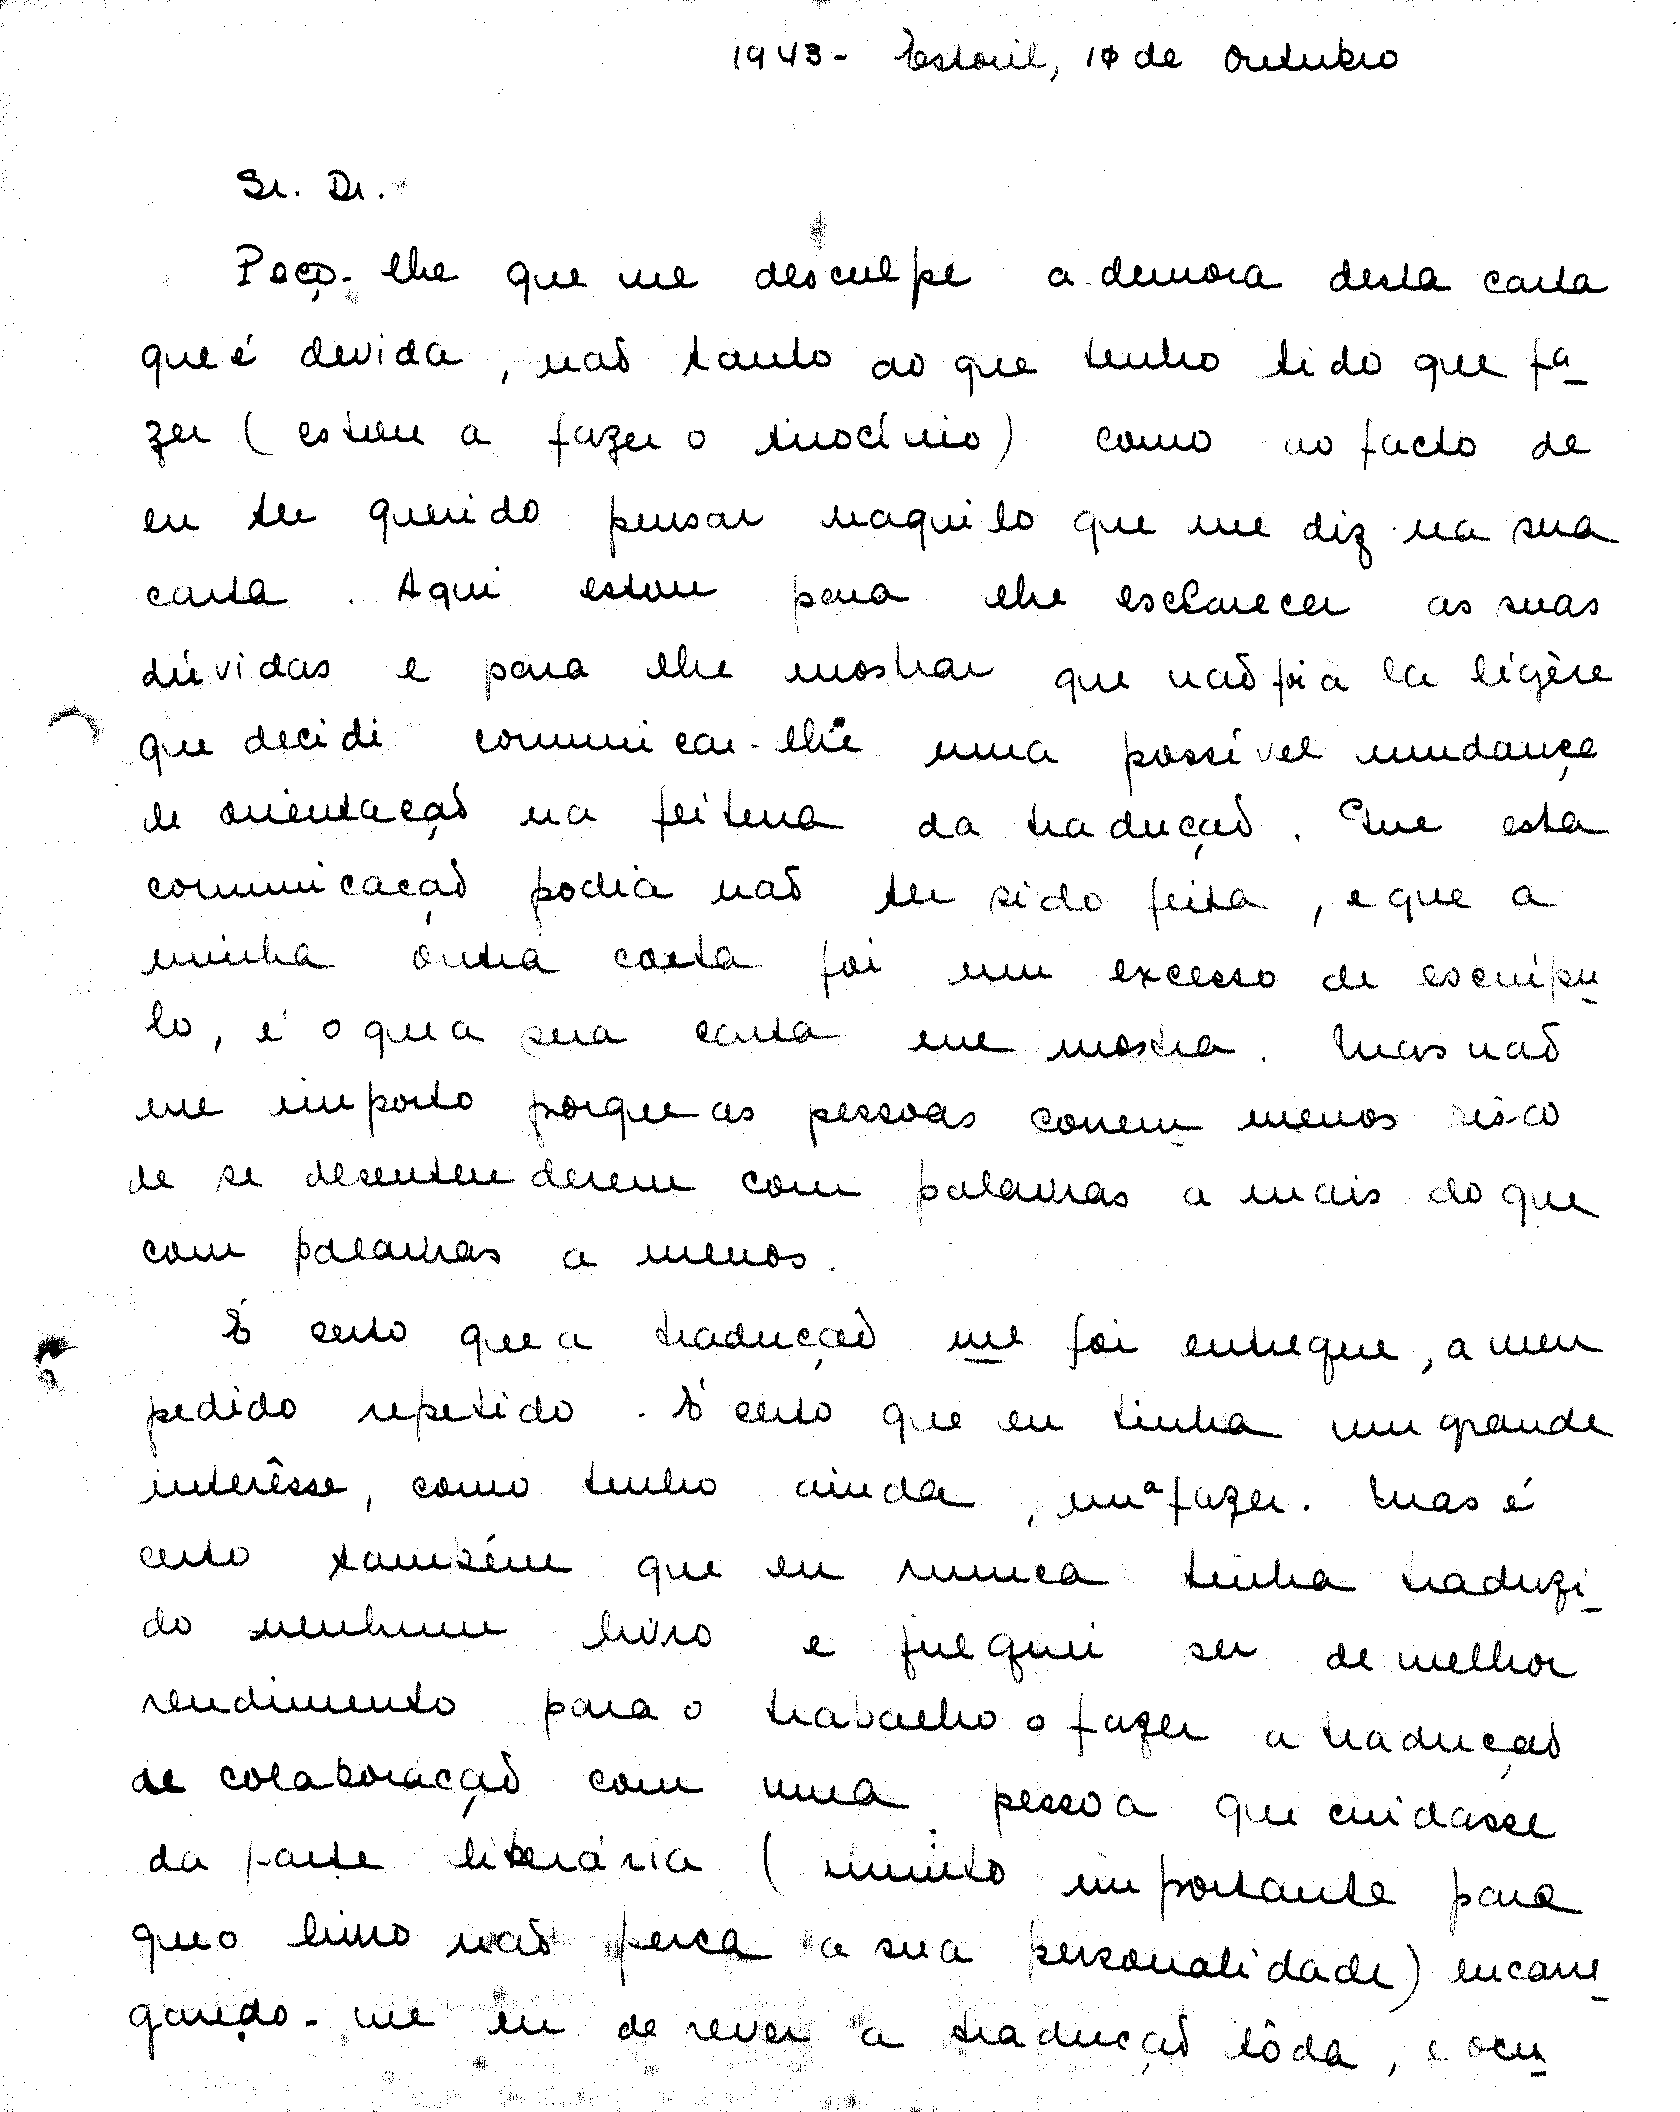 1943 - Estoril, 10 de Outubro
Sr. Dr.
Peço-lhe que me desculpe a demora desta carta
que é devida, não tanto ao que tenho tido que fa-
zer (estou a fazer o tirocínio) como ao facto de
eu ter querido pensar naquilo que me diz na sua
carta. Aqui estou para lhe esclarecer as suas
dúvidas e para lhe mostrar que não foi a la légère
que decidi comunicar-lhe uma possível mudança
de orientação na feitura da tradução. Que esta
comunicação podia não ter sido feita, e que a
minha outra carta foi um excesso de escrúpu-
lo, é o que a sua carta me mostra. Mas não
me importo porque as pessoas correm menos risco
de se desentenderem com palavras a mais do que
com palavras a menos.
É certo que a tradução me foi entregue, a meu
pedido repetido. É certo que eu tinha um grande
interêsse, como tenho ainda, em a fazer. Mas é
certo também que eu nunca tinha traduzi-
do nenhum livro e julguei ser de melhor
rendimento para o trabalho o fazer a tradução
de colaboração com uma pessoa que cuidasse
da parte literária (muito importante para
que o livro não perca a sua personalidade) encarre-
gando-me eu de rever a tradução tôda, e ocu-